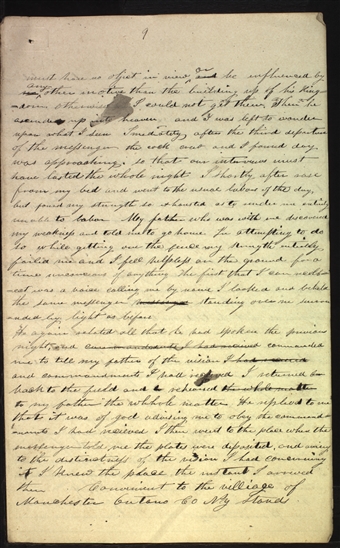 9
must have no object in view, or and be influenced by
any other motive than the building up of his King-
dom otherwise I could not get them, when he
ascended up into heaven and I was left to wonder
upon what I seen Imediately after the third departure
of the messenger the cock and I found day
was approaching, so that our interview must
have lasted the whole night I shortly after arose
from my bed and went to the usual labors of the day,
but found my strength so exhausted as to me entirely
unable to labor My father who was with me discovered
my weakness and told me to go home In attempting to do
so while getting over the fence my strength entirely
failed me and I fell helpless on the ground for a
time unconscious of anything the first that I can recol-
lect was a voice calling me by name I looked and beheld
the same messenger standing over me surroun
ded by light as before
He again related all that he had spoken the previous
night, and commanded
me to tell my father of the vision I had received
and commandments I had received I returned
back to the field and rehearsed the whole matter
to my father the whole matter He replied to me
that it was of god advising me to obey the command-
ments I had received I then went to the place where the
messenger told me the plates were deposited, and owing
to the distinctness of the vision I had concerning
it I Knew the place the instant I arrived
there Convenient to the village of
Manchester Ontario Co N.Y. Stands